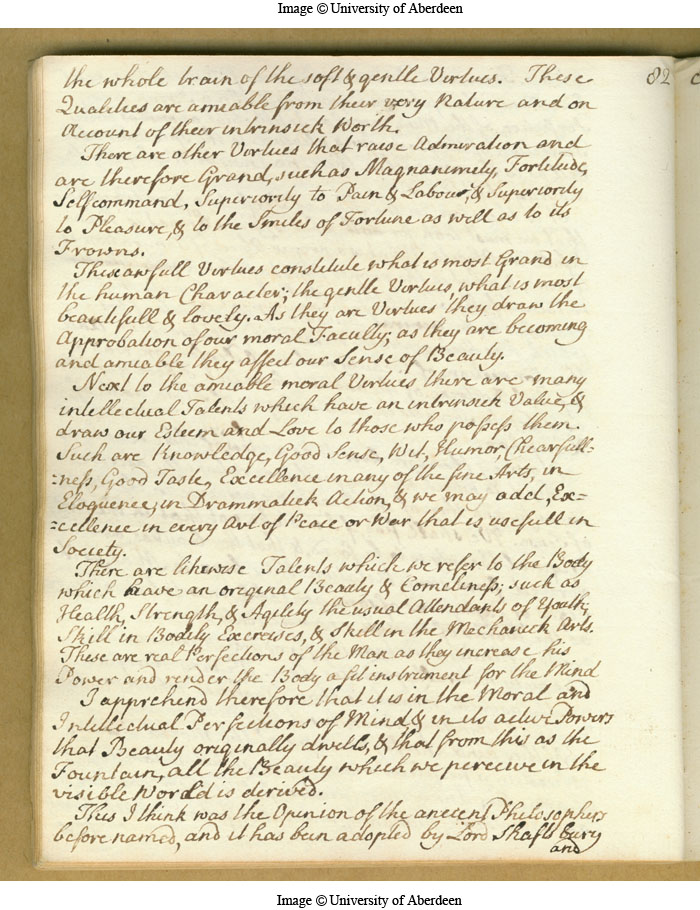 Image © University of Aberdeen
82
the whole train of the soft & gentle Virtues. These
Qualities are amiable from their very Nature and on
Account of their intrinsick Worth.
There are other Virtues that raise Admiration and
are therefore Grand, such as Magnanimity, Fortitude,
Selfcommand, Superiority to Pain & Labour, & Superiority
to Pleasure, & to the Smiles of Fortune as well as to its
Frowns.
These awfull Virtues constitute what is most Grand in
the human Character; the gentle Virtues, what is most
beautifull & lovely. As they are Virtues they draw the
Approbation of our moral Faculty; as they are becoming
and amiable they affect our Sense of Beauty.
Next to the amiable moral Virtues there are many
intellectual Talents which have an intrinsick Value, &
draw our Esteem and Love to those who possess them.
Such are Knowledge, Good Sense, Wit, Humor, Chearfull-
-ness, Good Taste, Excellence in any of the fine Arts, in
Eloquence, in Drammatick Action, & we may add, Ex-
-cellence in every Art of Peace or War that is usefull in
Society.
There are likewise Talents which we refer to the Body
which have an original Beauty & Comeliness; such as
Health, Strength, & Agility the usual Attendants of Youth;
Skill in Bodily Exercises, & Skill in the Mechanick Arts.
These are real Perfections of the Man as they increase his
Power and render the Body a fit instrument for the Mind
I apprehend therefore that it is in the Moral and
Intellectual Perfections of Mind & in its active Powers
that Beauty originally dwells, & that from this as the
Fountain, all the Beauty which we perceive in the
visible World is derived.
This I think was the Opinion of the ancient Philosophers
before named, and it has been adopted by Lord Shaftsbury
and
Image © University of Aberdeen